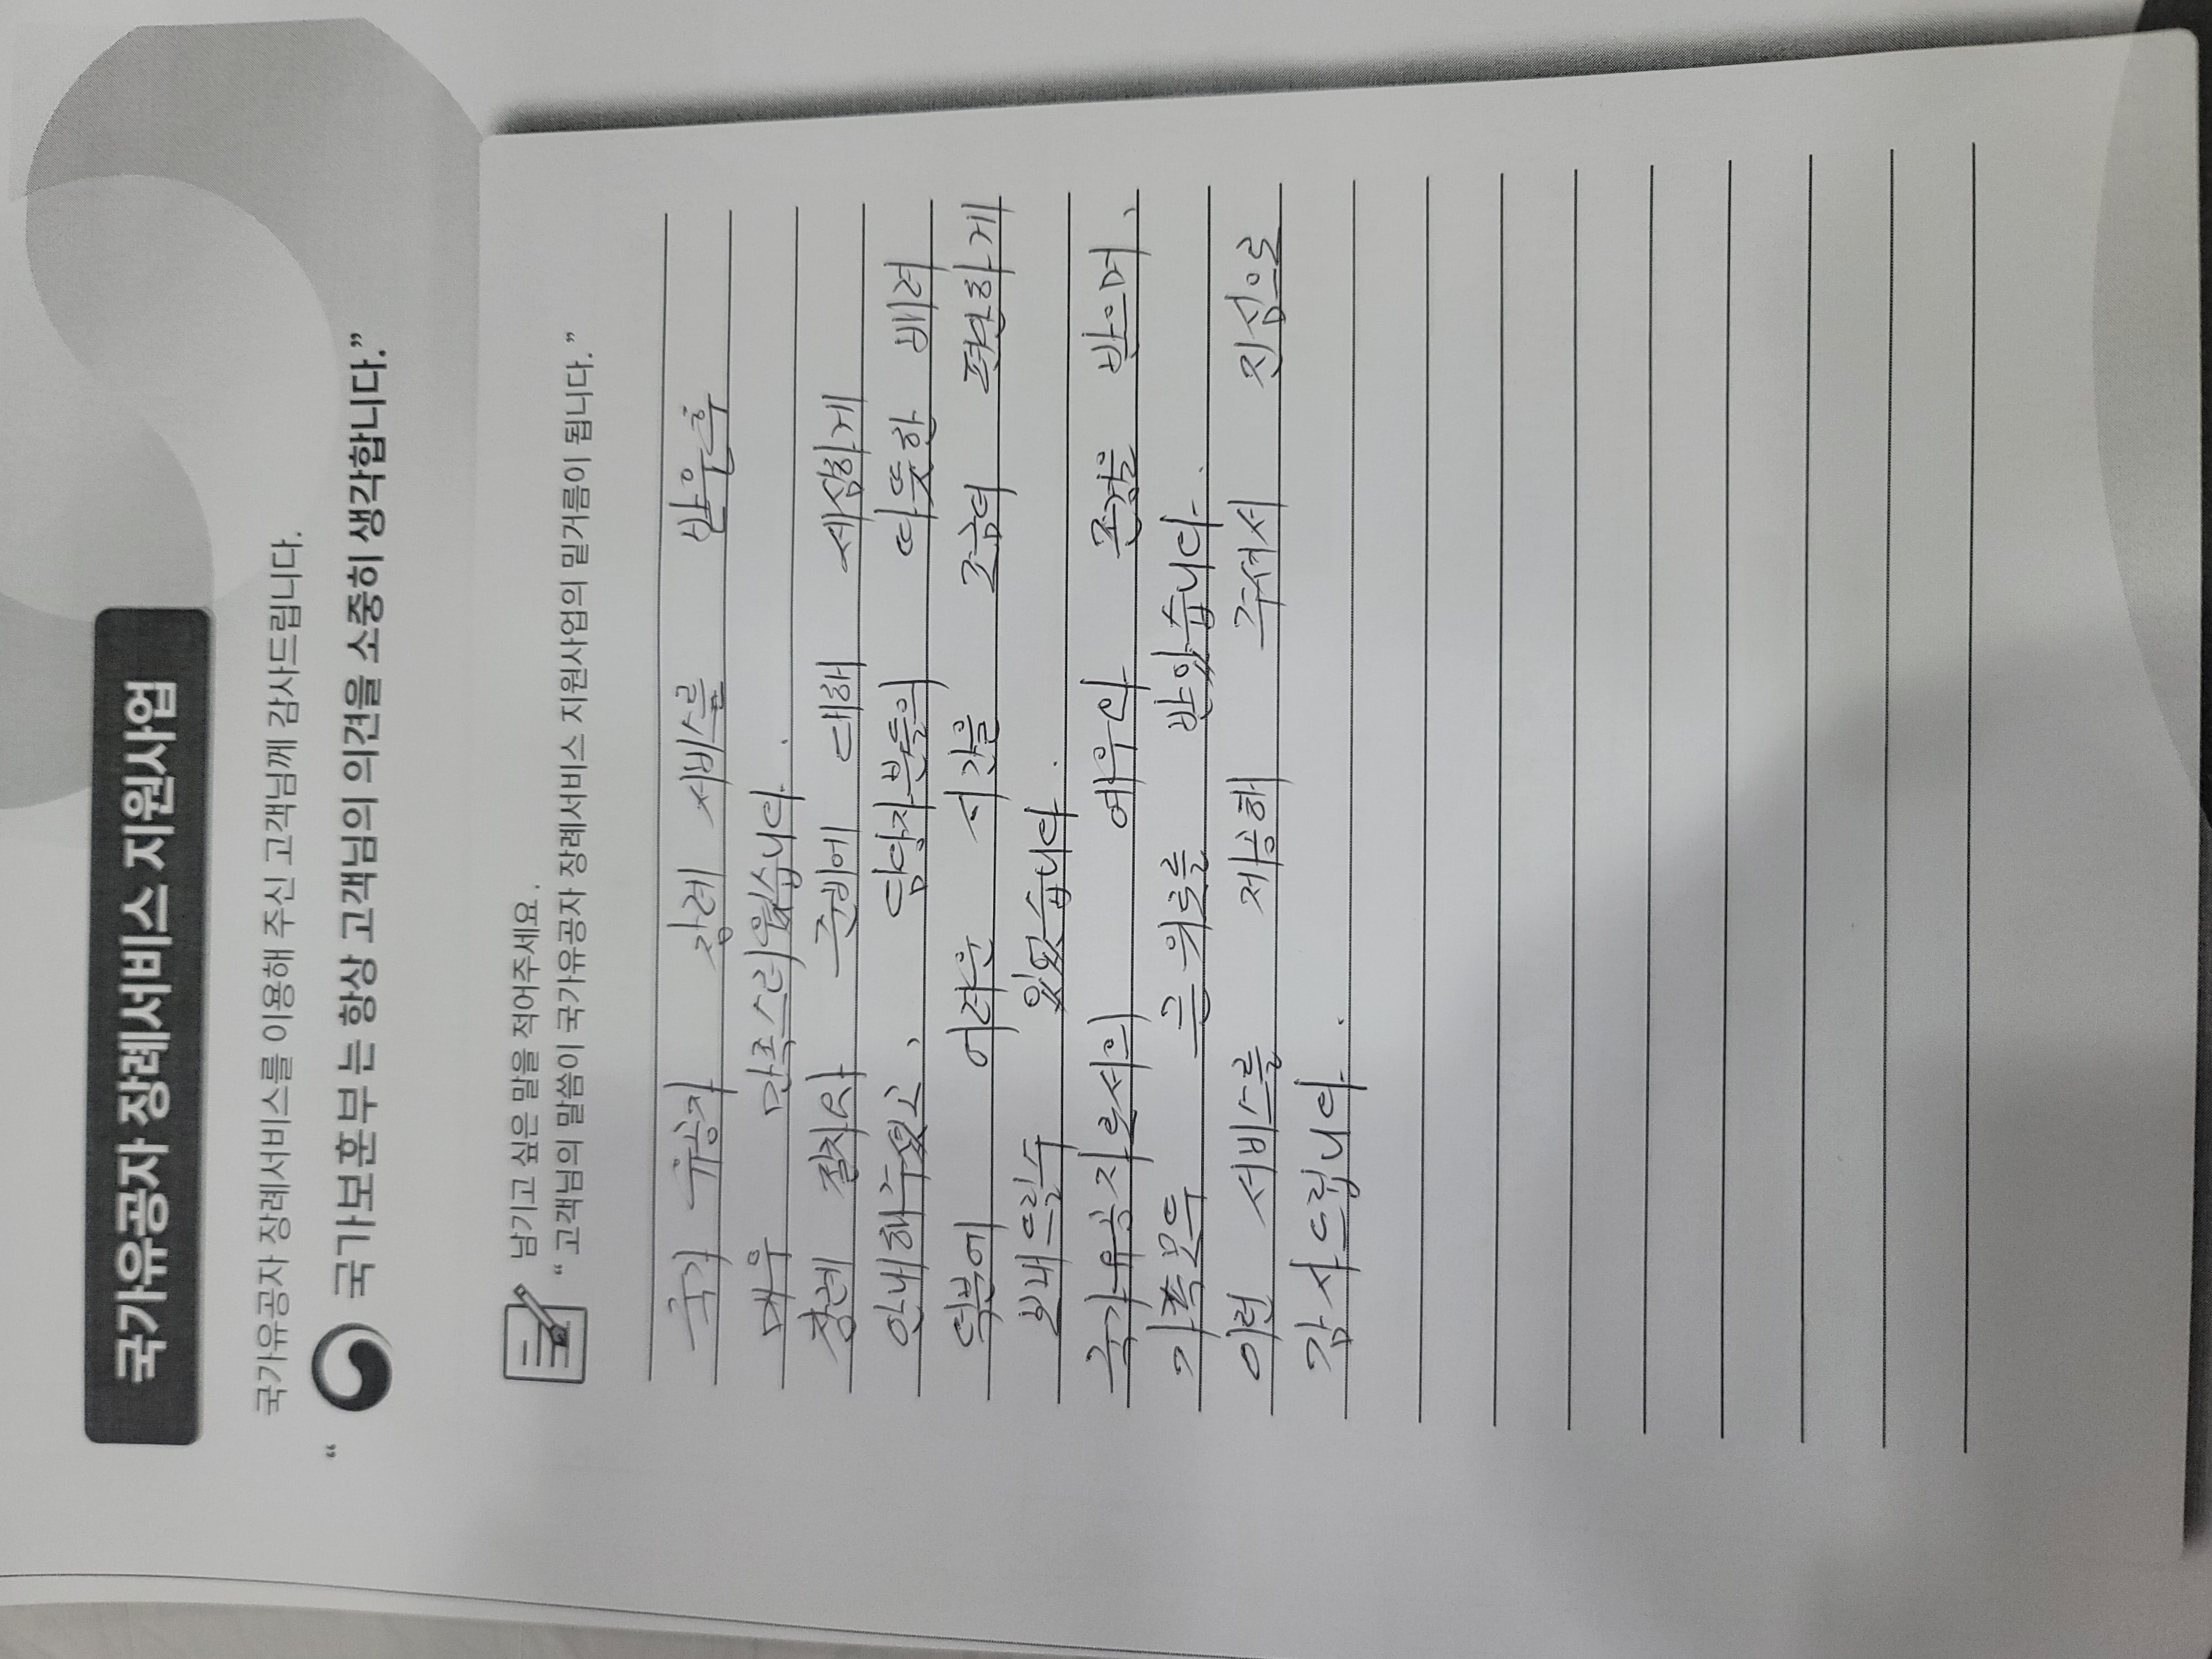 국가유공자 장례서비스 지원사업
국가유공자 장례서비스를 이용해 주신 고객님께 감사드립니다.
“ 국가보훈부 는 항상 고객님의 의견을 소중히 생각합니다.”
남기고 싶은 말을 적어주세요.
“ 고객님의 말씀이 국가유공자 장례서비스 지원사업의 밑거름이 됩니다. ”
국가 유공자 장례 서비스를 받은후
매우 만족스러웠습니다.
장례 절차와 준비에 대해 세심하게
안내해주셨고, 담당자분들의 따뜻한 배려
덕분에 어려운 시간을 조금더 편안하게
보내드릴수 있었습니다.
국가유공자로서의 예우와 존경을 받으며,
가족모두 큰위로를 받았습니다.
이런 서비스를 제공해 주셔서 진심으로
감사드립니다.